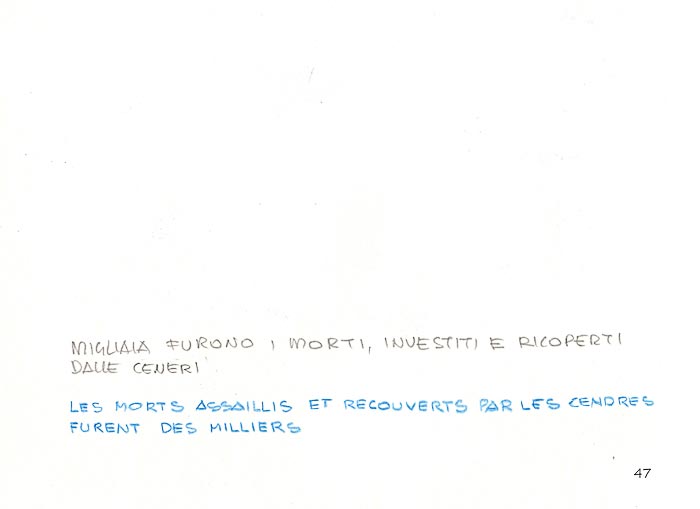 MIGLIAIA FURONO I MORTI, INVESTITI E RICOPERTI
DALLE CENERI
LES MORTS ASSAILLIS ET RECOUVERTS PAR LES CENDRES
FURENT DES MILLIERS
47